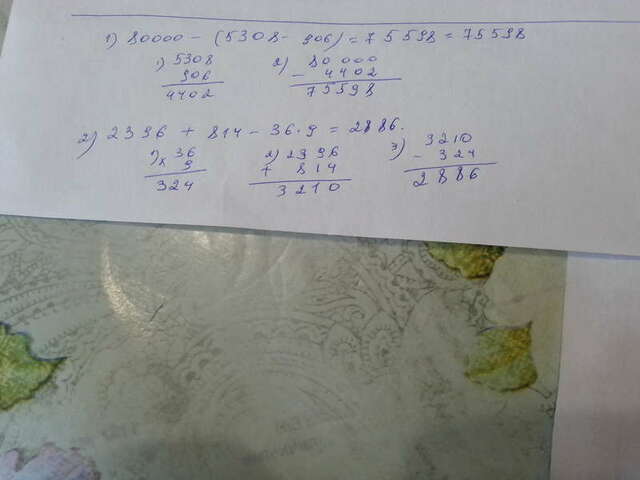 1) 80000 - (5308 - 906) = 75598 = 75598
1) 5308
906
4402
2) 80 000
- 4402
75598
2) 2396 + 814 - 36 · 9 = 2886.
1) x 36
9
324
2) 2396
+ 814
3210
3) 3210
- 324
2886